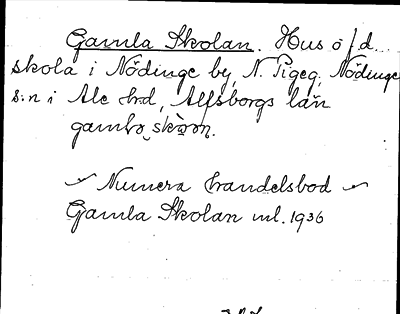 Gamla Skolan. Hus o f.d.
skola i Nödinge by, N. Pigeg. Nödinge
s:n i Ale hrd, Älfsborgs län
Numera handelsbod
Gamla Skolan ml. 1936